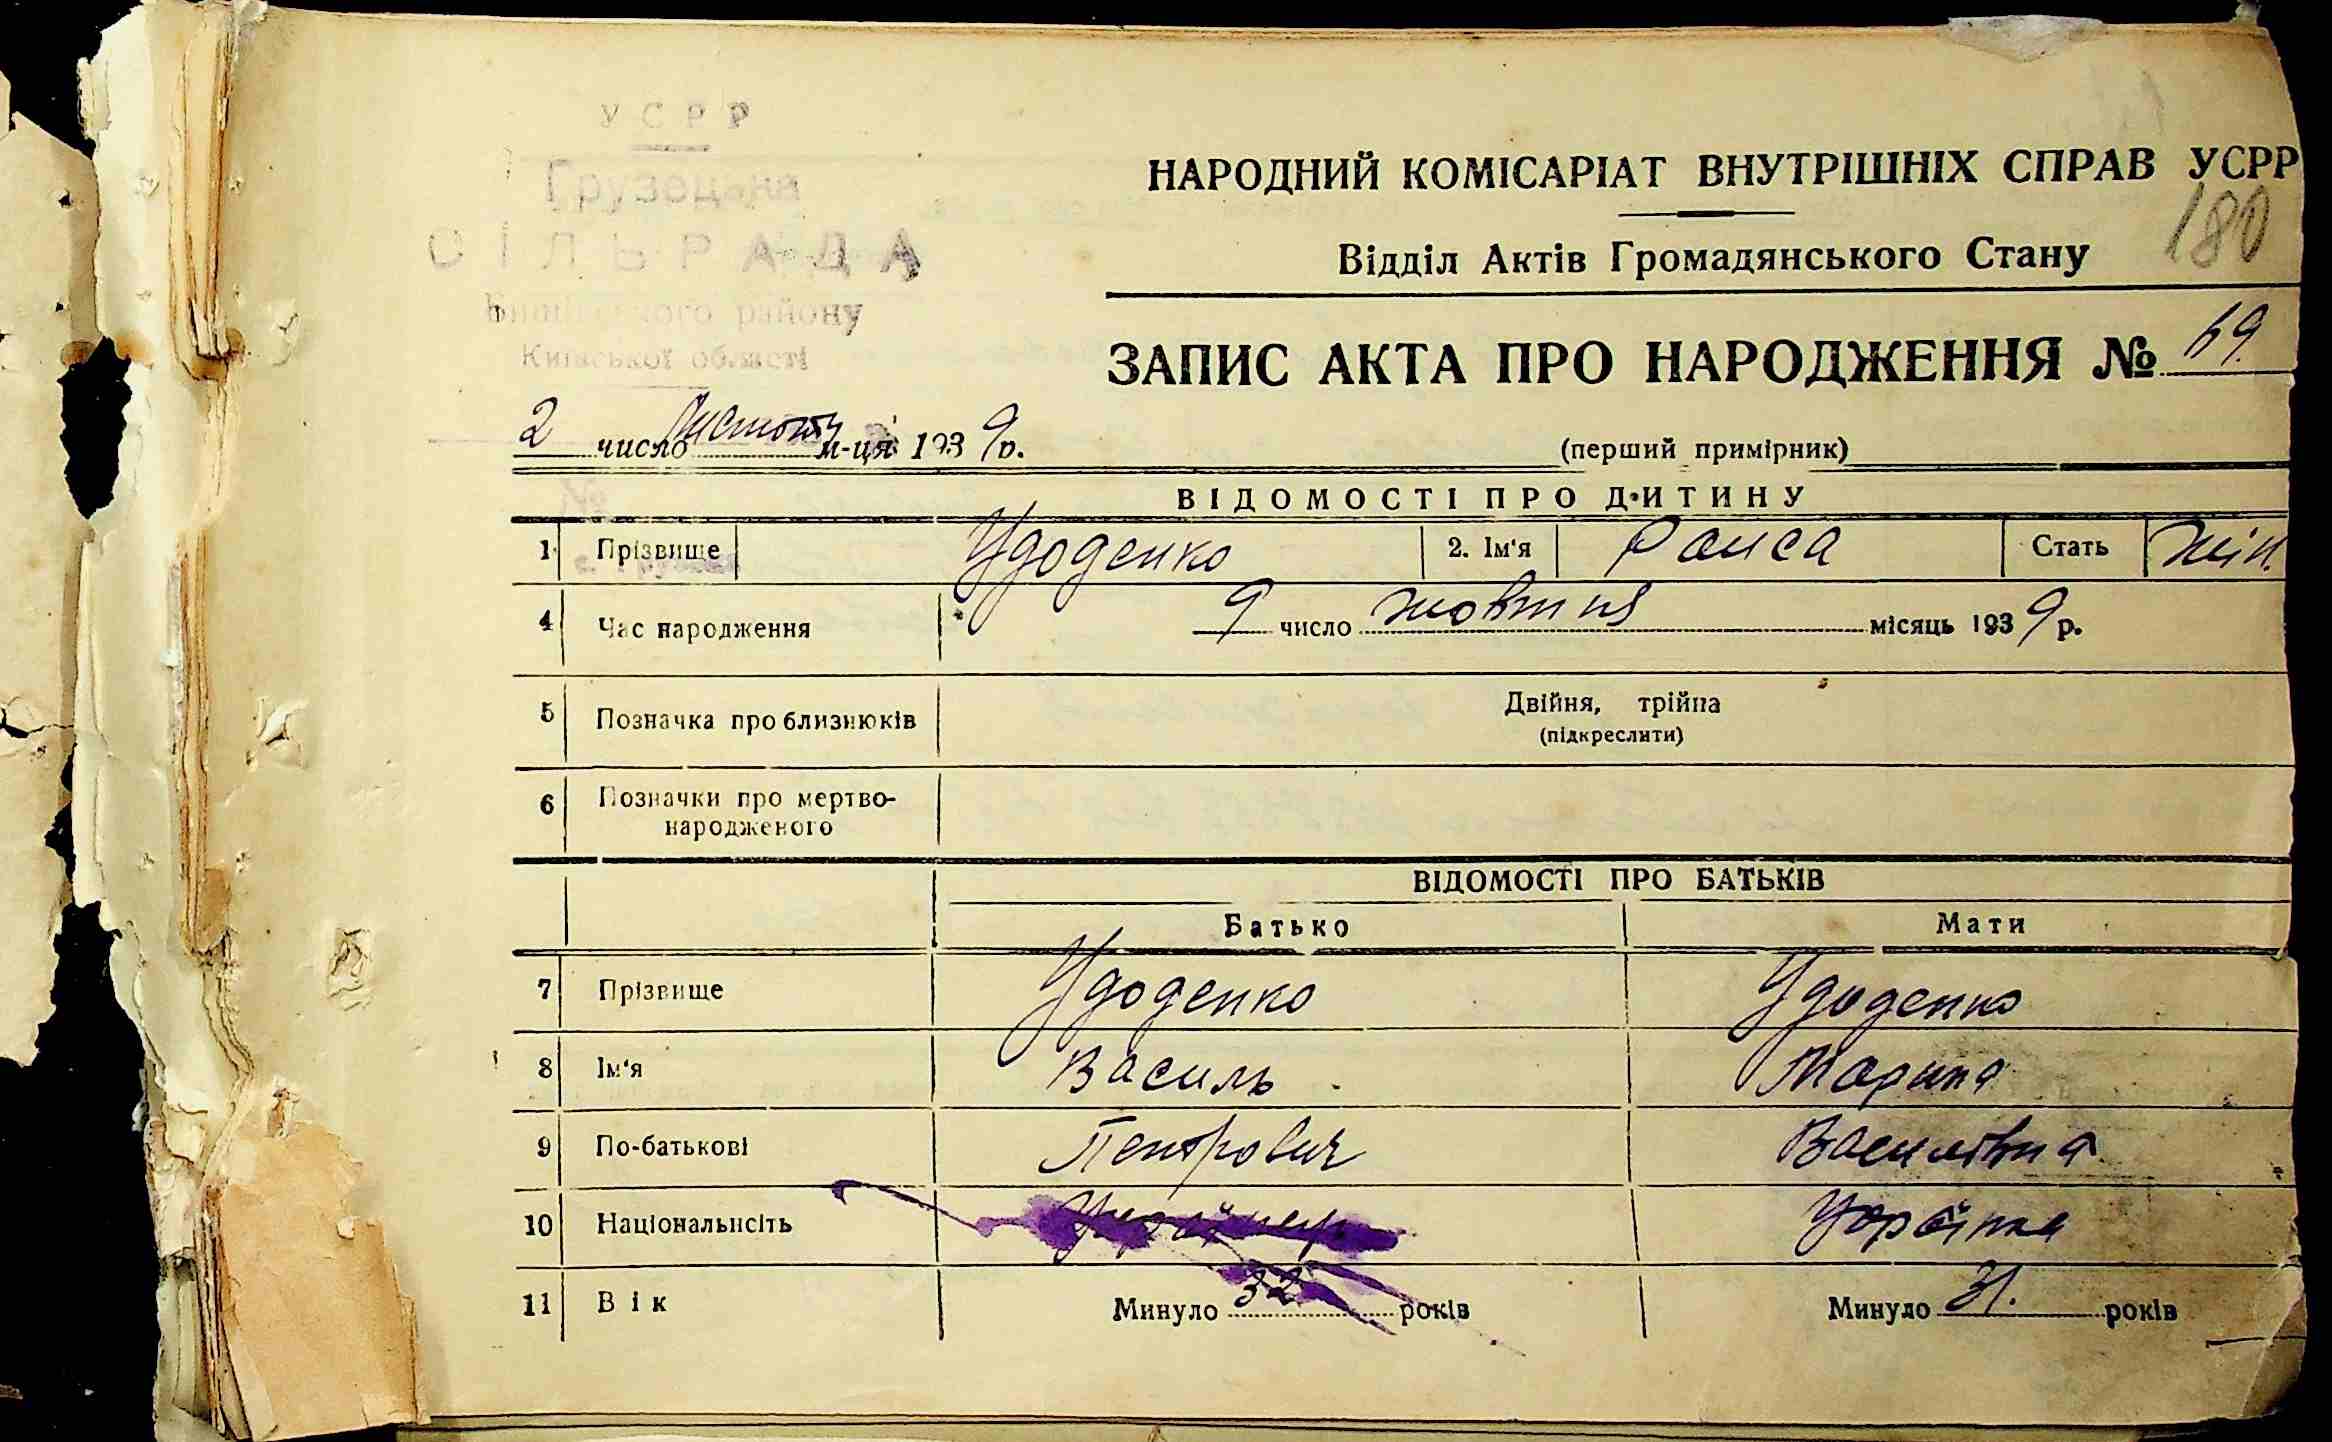 УСРР
Грузецька
СІЛЬРАДА
району
Київської області
НАРОДНИЙ КОМІСАРІАТ ВНУТРІШНІХ СПРАВ УСРР
180
Відділ Актів Громадянського Стану
ЗАПИС АКТА ПРО НАРОДЖЕННЯ № 69.
2 число Листопа м-ця 1939 р.
(перший примірник)
ВІДОМОСТІ ПРО ДИТИНУ
1 Прізвище Удоденко 2. Ім'я Раиса Стать жін.
4 Час народження 9 число жовтня місяць 1939 р.
5 Позначка про близнюків Двійня, трійна
(підкреслити)
6 Позначки про мертво-
народженого
ВІДОМОСТІ ПРО БАТЬКІВ
Батько Мати
7 Прізвище Удоденко Удоденко
8 Ім'я Василь Марина
9 По-батькові Пентрович Василівна
10 Національність Українец Українка
11 Вік Минуло 32 років Минуло 31. років